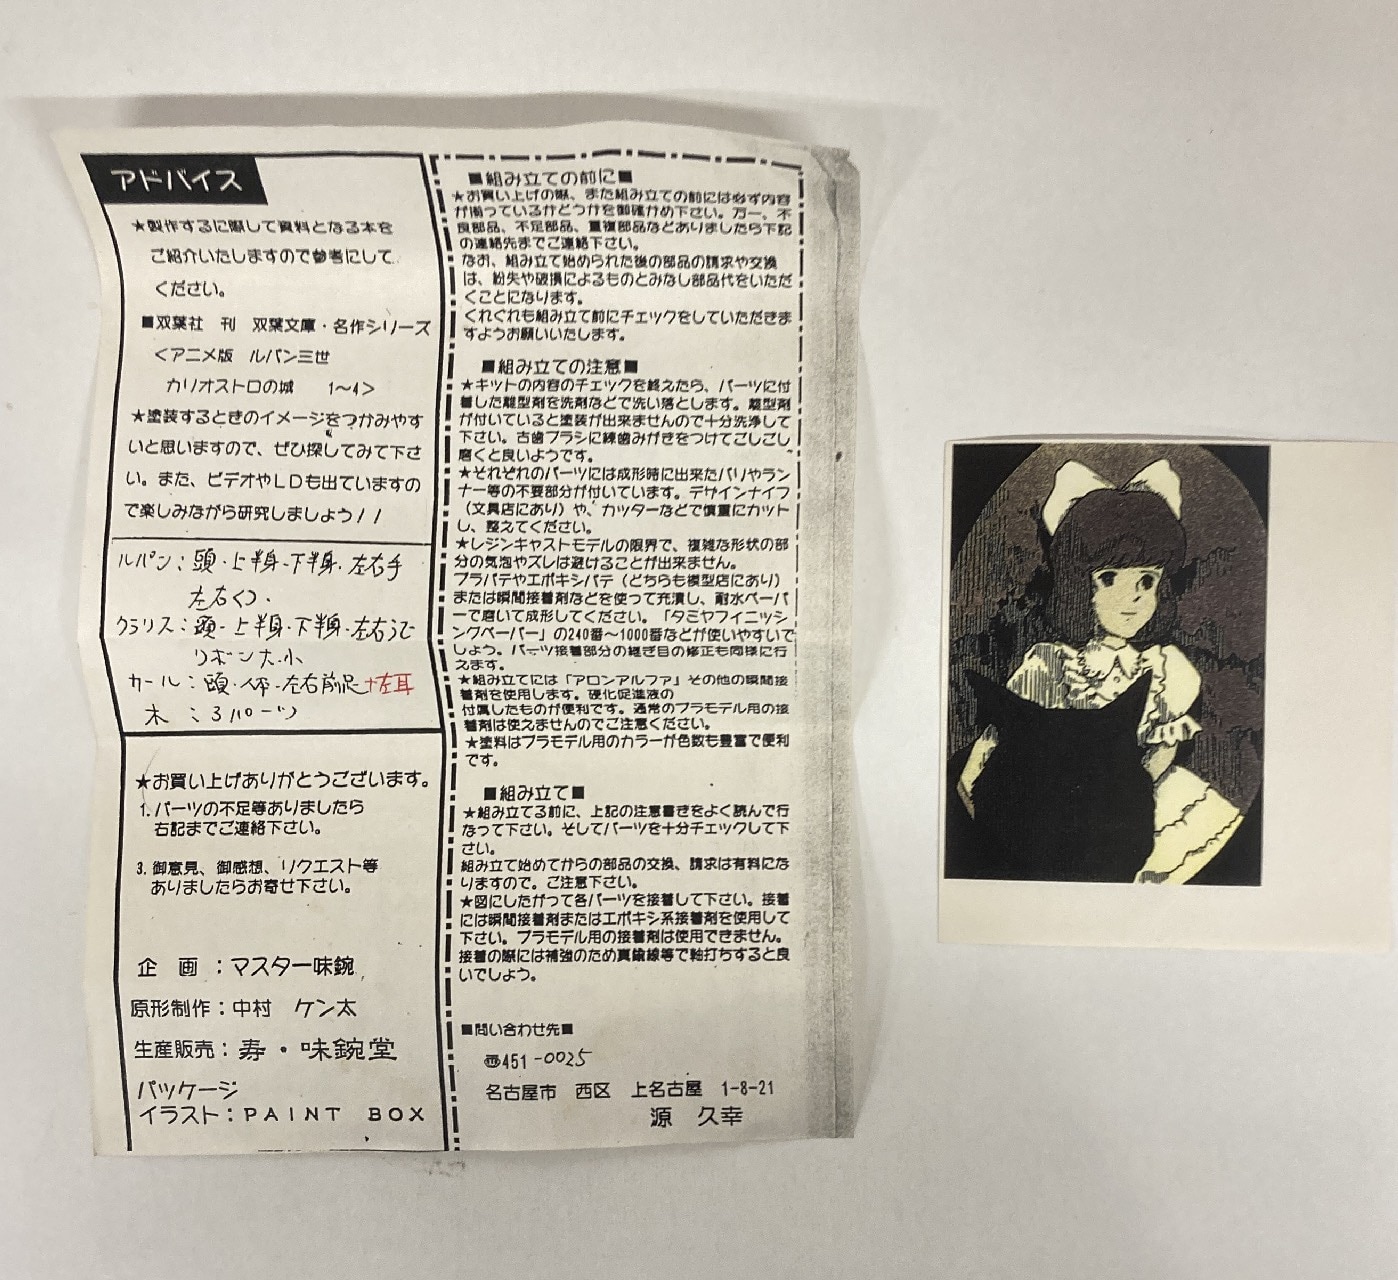 アドバイス
★製作するに際して資料となる本を
ご紹介いたしますので参考にして
ください。
■双葉社 刊 双葉文庫・名作シリーズ
<アニメ版 ルパン三世
カリオストロの城 1〜4>
★塗装するときのイメージをつかみやす
いと思いますので、ぜひ探してみて下さ
い。また、ビデオやLDも出ていますの
で楽しみながら研究しましょう!!
ルパン:頭・上半身・下半身・左右手
左右くつ・
クラリス:頭・上半身・下半身・左右うで
リボン大・小
カール:頭・体・左右前足+左耳
木:3パーツ
★お買い上げありがとうございます。
1.パーツの不足等ありましたら
右記までご連絡下さい。
3.御意見、御感想、リクエスト等
ありましたらお寄せ下さい。
企 画:マスター味鋺
原形制作:中村 ケン太
生産販売:寿・味鋺堂
パッケージ
イラスト:PAINT BOX
■組み立ての前に■
★お買い上げの際、また組み立ての前には必ず内容
が揃っているかどうかを御確かめ下さい。万一、不
良部品、不足部品、重複部品などありましたら下記
の連絡先までご連絡下さい。
なお、組み立て始められた後の部品の請求や交換
は、紛失や破損によるものとみなし部品代をいただ
くことになります。
くれぐれも組み立て前にチェックをしていただきま
すようお願いいたします。
■組み立ての注意■
★キットの内容のチェックを終えたら、パーツに付
着した離型剤を洗剤などで洗い落とします。離型剤
が付いていると塗装が出来ませんので十分洗浄して
下さい。古歯ブラシに練歯みがきをつけてごしごし
磨くと良いようです。
★それぞれのパーツには成形時に出来たバリやラン
ナー等の不要部分が付いています。デザインナイフ
(文具店にあり)や、カッターなどで慎重にカット
し、整えてください。
★レジンキャストモデルの限界で、複雑な形状の部
分の気泡やズレは避けることが出来ません。
プラパテやエポキシパテ(どちらも模型店にあり)
または瞬間接着剤などを使って充填し、耐水ペーパ
ーで磨いて成形してください。「タミヤフィニッシ
ングペーパー」の240番〜1000番などが使いやすいで
しょう。パーツ接着部分の継ぎ目の修正も同様に行
えます。
★組み立てには「アロンアルファ」その他の瞬間接
着剤を使用します。硬化促進液の
付属したものが便利です。通常のプラモデル用の接
着剤は使えませんのでご注意ください。
★塗料はプラモデル用のカラーが色数も豊富で便利
です。
■組み立て■
★組み立てる前に、上記の注意書きをよく読んで行
なって下さい。そしてパーツを十分チェックして下
さい。
組み立て始めてからの部品の交換、請求は有料にな
りますので。ご注意下さい。
★図にしたがって各パーツを接着して下さい。接着
には瞬間接着剤またはエポキシ系接着剤を使用して
下さい。プラモデル用の接着剤は使用できません。
接着の際には補強のため真鍮線等で軸打ちすると良
いでしょう。
■問い合わせ先■
〠451-0025
名古屋市 西区 上名古屋 1-8-21
源 久幸